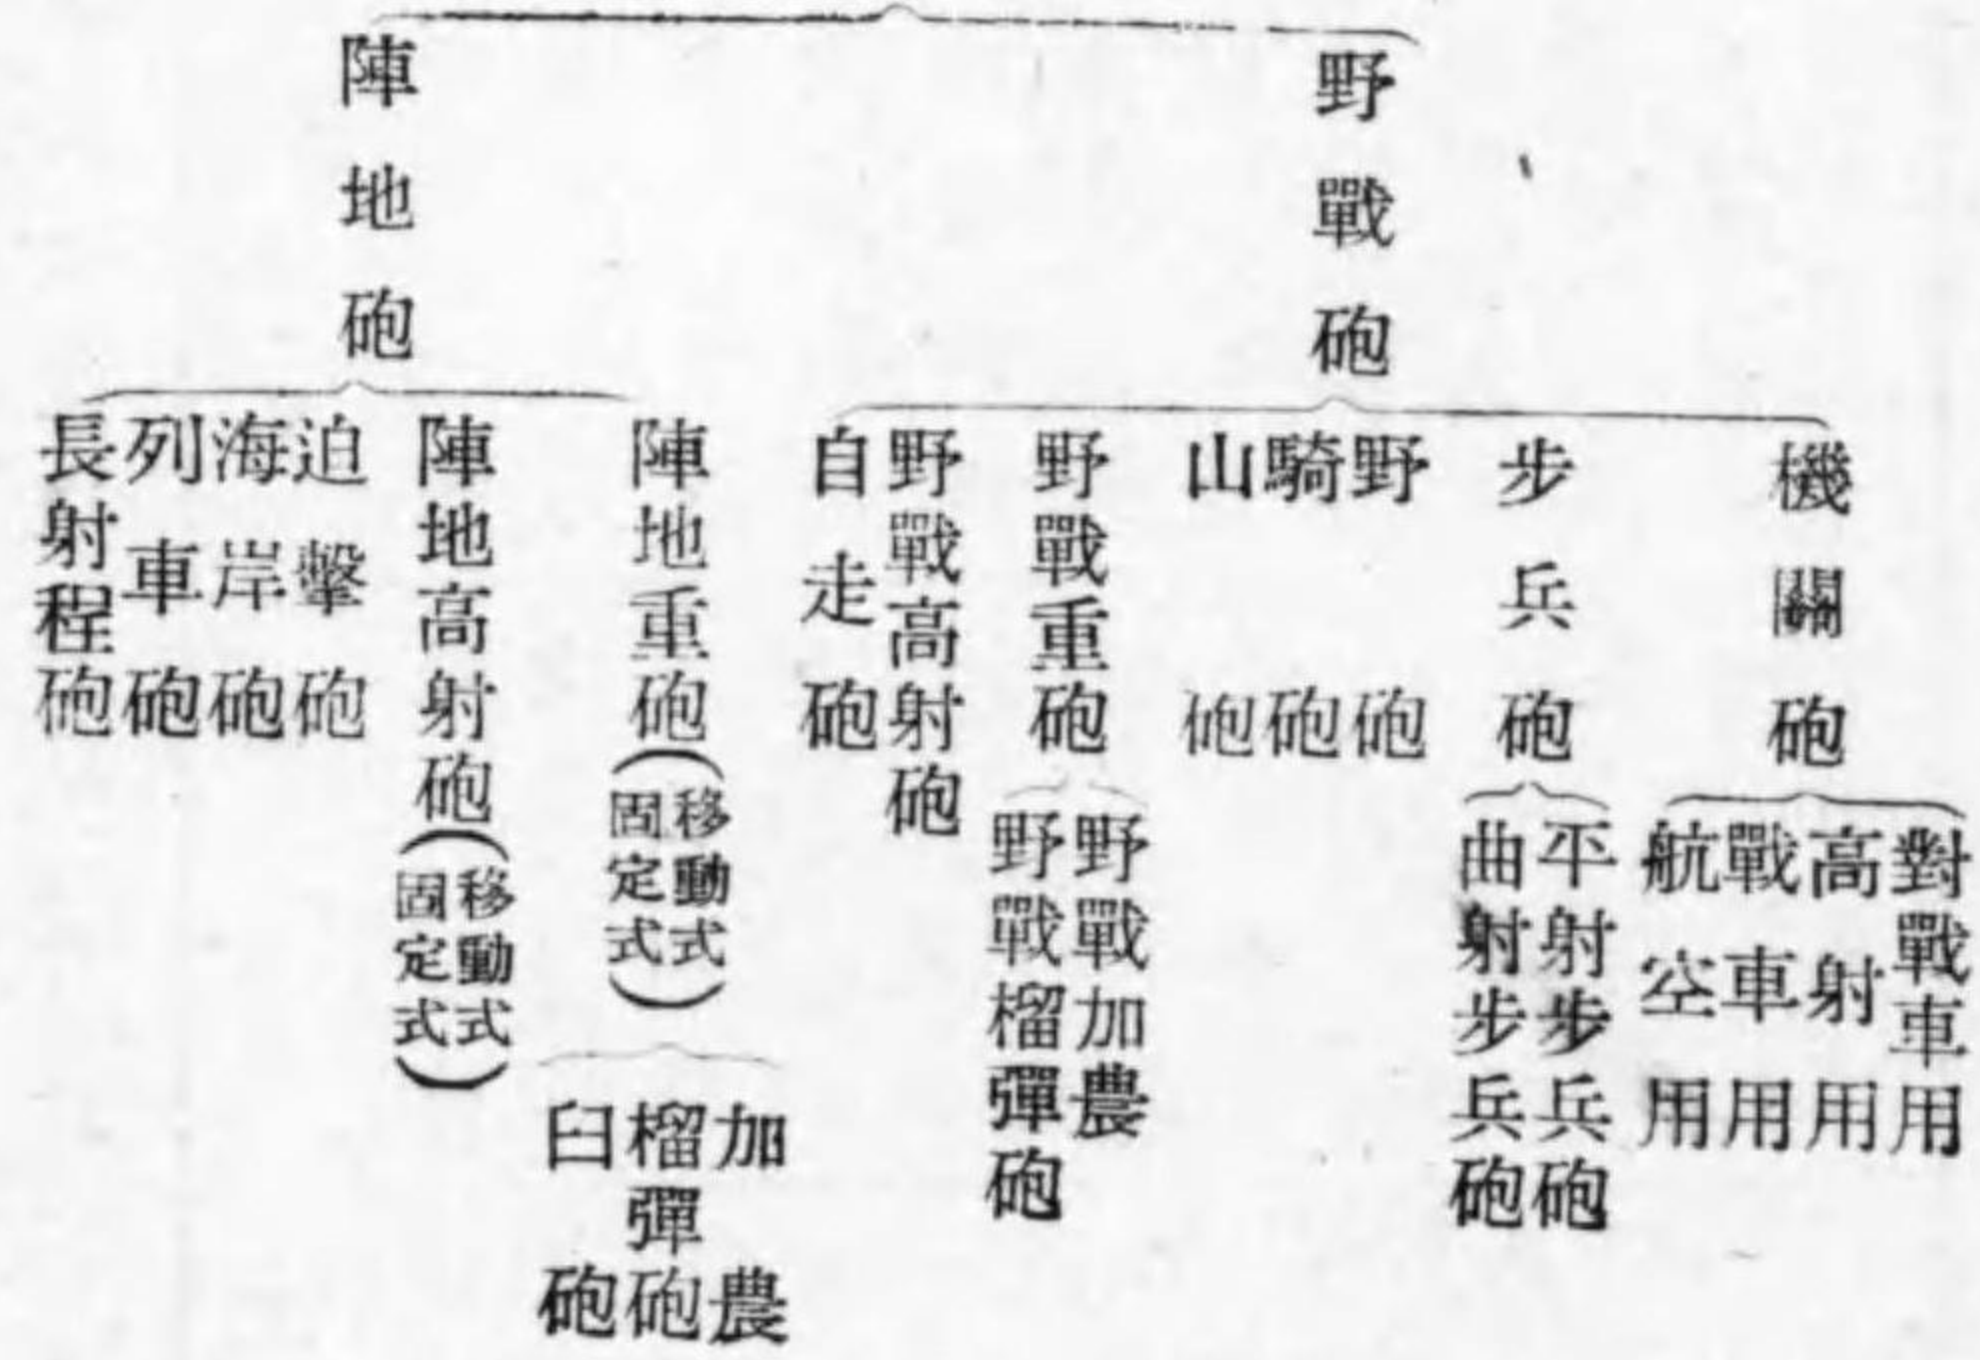 野戰砲
機關砲
對戰車用
高射用
戰車用
航空用
步兵砲
平射步兵砲
曲射步兵砲
野砲
騎砲
山砲
野戰重砲
野戰加農
野戰榴彈砲
野戰高射砲
自走砲
陣地砲
陣地重砲(移動式
固定式)
加農
榴彈砲
臼砲
陣地高射砲(移動式
固定式)
迫擊砲
海岸砲
列車砲
長射程砲